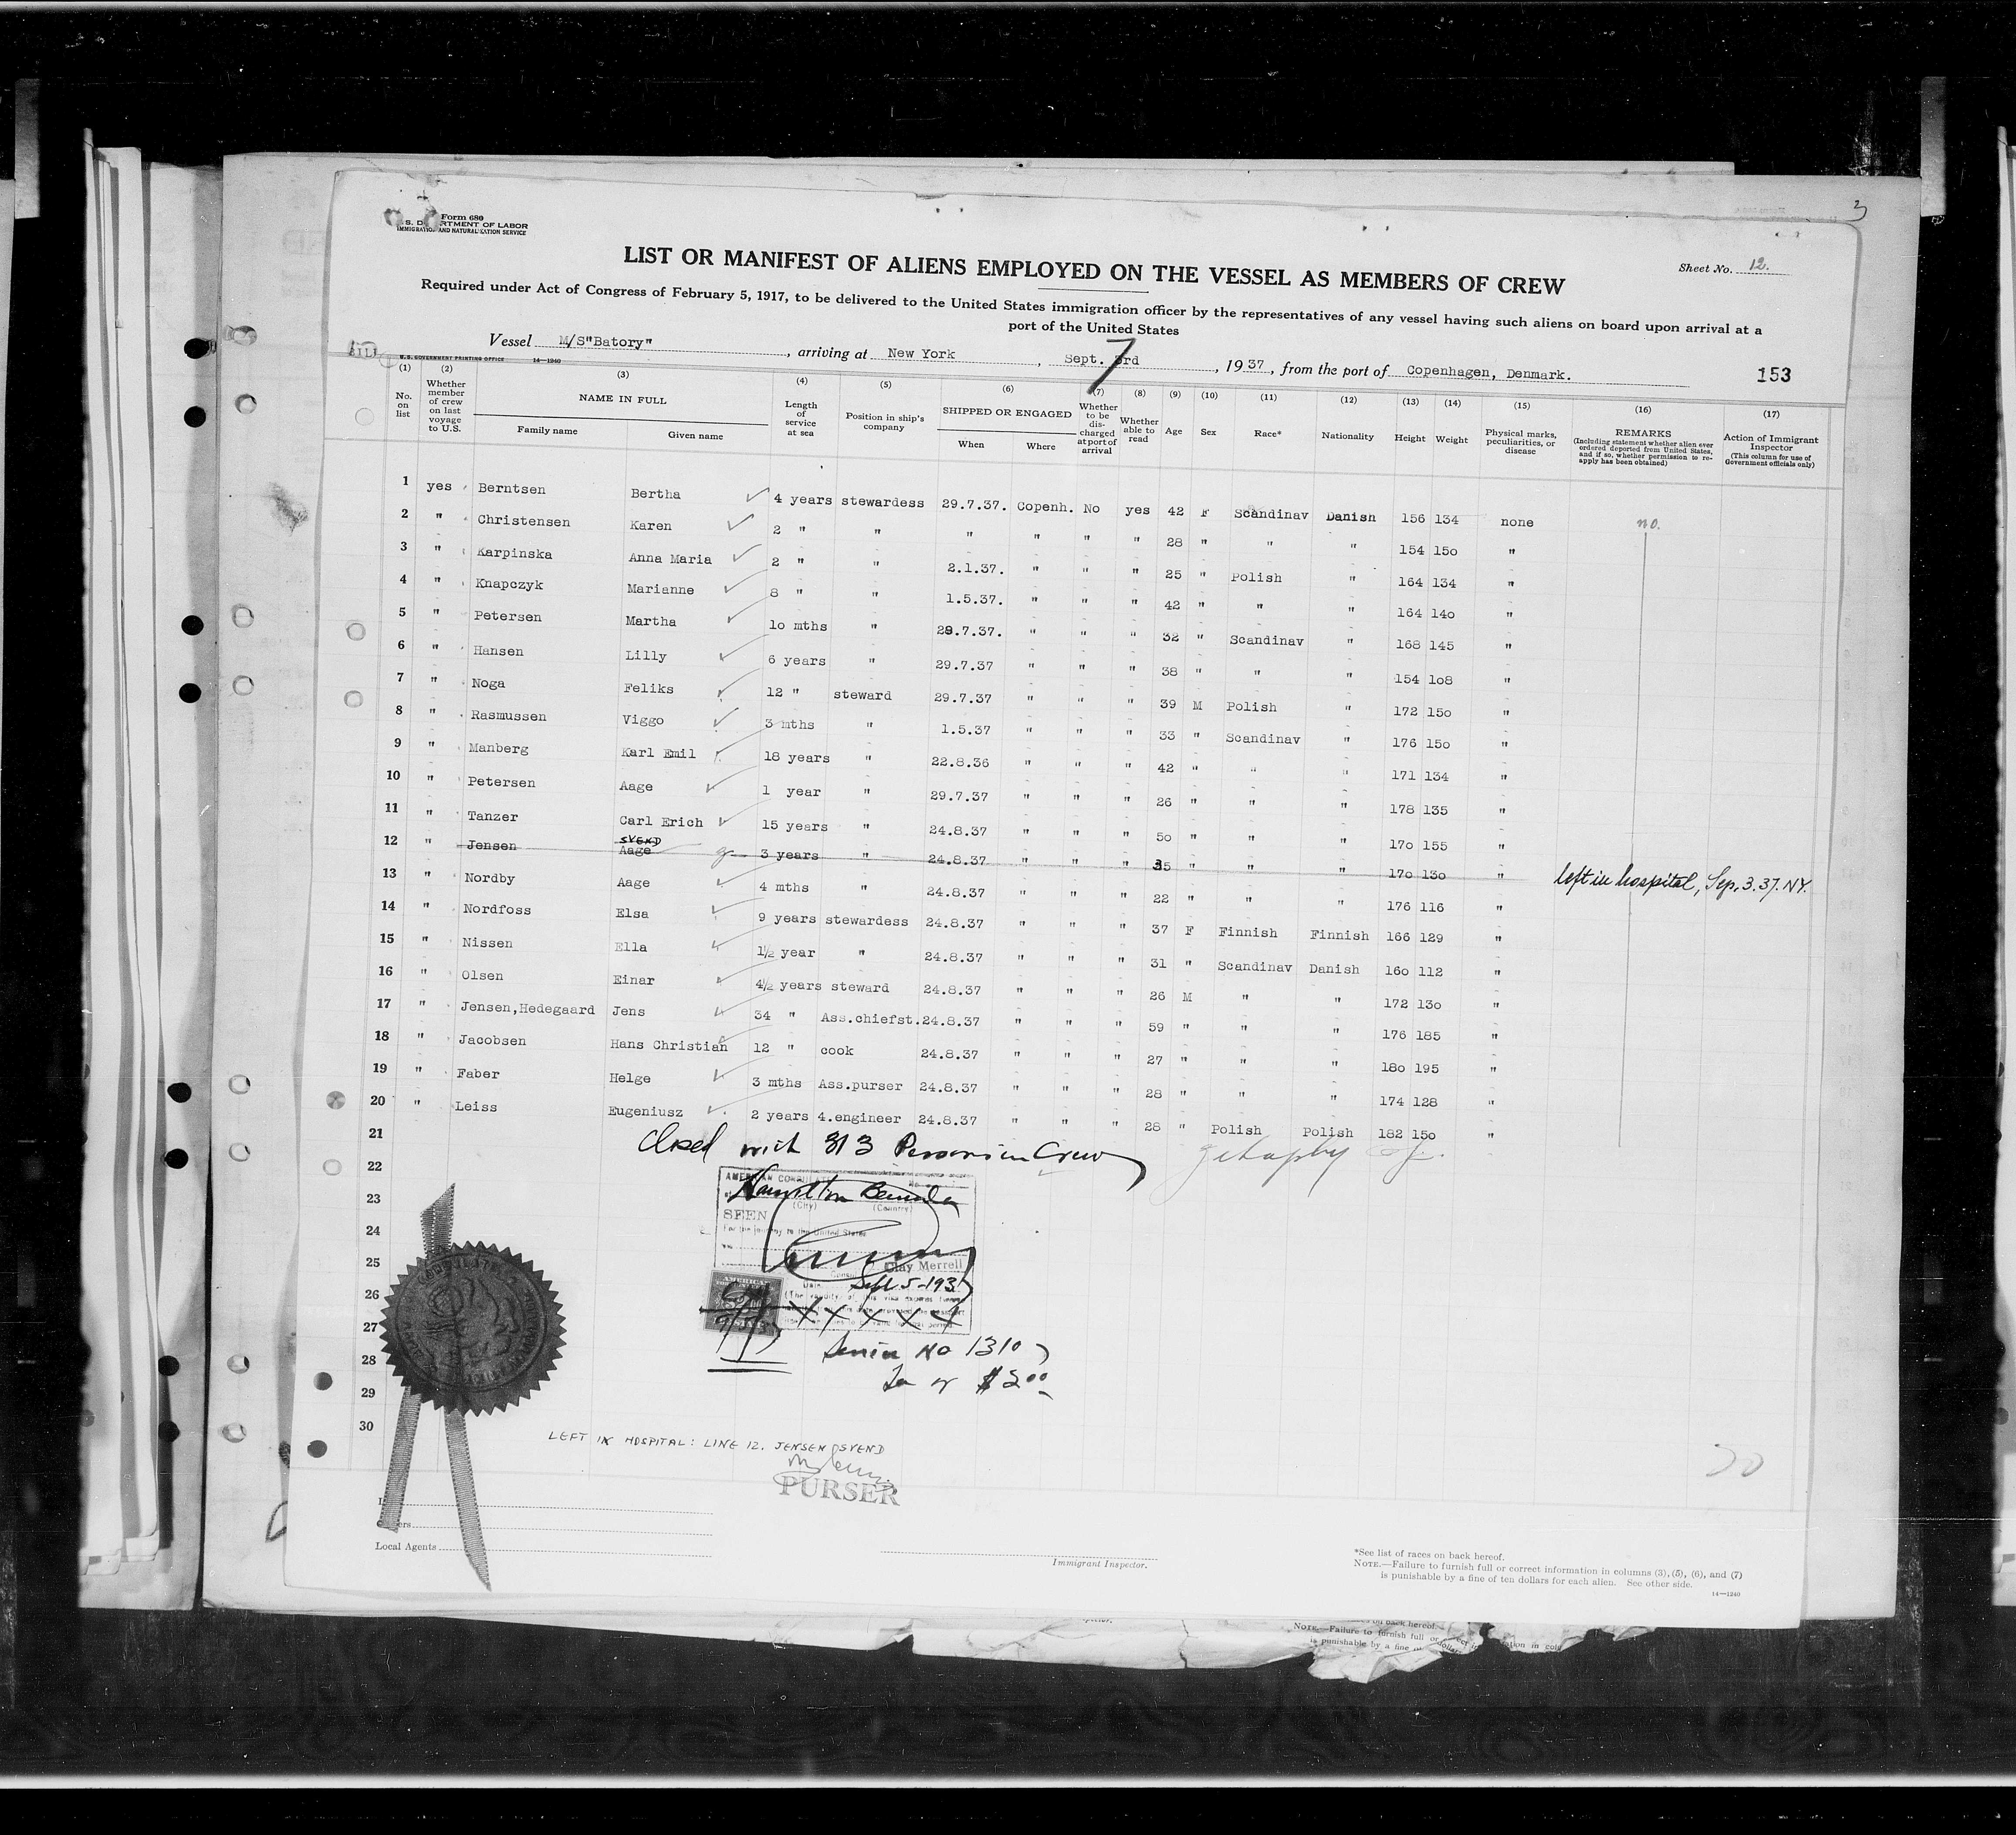 Form 680
U.S. DEPARTMENT OF LABOR
IMMIGRATION AND NATURALIZATION SERVICE
Sheet No. 12.
LIST OR MANIFEST OF ALIENS EMPLOYED ON THE VESSEL AS MEMBERS OF CREW
Required under Act of Congress of February 5, 1917, to be delivered to the United States immigration officer by the representatives of any vessel having such aliens on board upon arrival at a
port of the United States
Vessel M/S"Batory", arriving at New York, Sept. 3rd 7, 1937, from the port of Copenhagen, Denmark. 153
U.S. GOVERNMENT PRINTING OFFICE 14—1240
(1) (2) (3) (4) (5) (6) (7) (8) (9) (10) (11) (12) (13) (14) (15) (16) (17)
No. on list
Whether member of crew on last voyage to U.S.
NAME IN FULL
Family name Given name
Length of service at sea
Position in ship's company
SHIPPED OR ENGAGED
When Where
Whether to be discharged at port of arrival
Whether able to read
Age
Sex
Race*
Nationality
Height
Weight
Physical marks, peculiarities, or disease
REMARKS
(Including statement whether alien ever ordered deported from United States, and if so, whether permission to reapply has been obtained)
Action of Immigrant Inspector
(This column for use of Government officials only)
1 yes Berntsen Bertha 4 years stewardess 29.7.37. Copenh. No yes 42 F Scandinav Danish 156 134 none no.
2 " Christensen Karen 2 " " " " " " 28 " " " 154 150 "
3 " Karpinska Anna Maria 2 " " 2.1.37. " " " 25 " Polish " 164 134 "
4 " Knapczyk Marianne 8 " " 1.5.37. " " " 42 " " " 164 140 "
5 " Petersen Martha 10 mths " 29.7.37. " " " 32 " Scandinav " 168 145 "
6 " Hansen Lilly 6 years " 29.7.37 " " " 38 " " " 154 108 "
7 " Noga Feliks 12 " steward 29.7.37 " " " 39 M Polish " 172 150 "
8 " Rasmussen Viggo 3 mths " 1.5.37 " " " 33 " Scandinav " 176 150 "
9 " Manberg Karl Emil 18 years " 22.8.36 " " " 42 " " " 171 134 "
10 " Petersen Aage 1 year " 29.7.37 " " " 26 " " " 178 135 "
11 " Tanzer Carl Erich 15 years " 24.8.37 " " " 50 " " " 170 155 "
SVEND
12 " Jensen Aage 3 years " 24.8.37 " " " 35 " " " 170 130 " left in hospital, Sep. 3. 37. NY.
13 " Nordby Aage 4 mths " 24.8.37 " " " 22 " " " 176 116 "
14 " Nordfoss Elsa 9 years stewardess 24.8.37 " " " 37 F Finnish Finnish 166 129 "
15 " Nissen Ella 1½ year " 24.8.37 " " " 31 " Scandinav Danish 160 112 "
16 " Olsen Einar 4½ years steward 24.8.37 " " " 26 M " " 172 130 "
17 " Jensen,Hedegaard Jens 34 " Ass.chiefst. 24.8.37 " " " 59 " " " 176 185 "
18 " Jacobsen Hans Christian 12 " cook 24.8.37 " " " 27 " " " 180 195 "
19 " Faber Helge 3 mths Ass.purser 24.8.37 " " " 28 " " " 174 128 "
20 " Leiss Eugeniusz 2 years 4.engineer 24.8.37 " " " 28 " Polish Polish 182 150 "
21 Closed with 313 Persons in Crew
22
23
24
25
26
27
28
29
30
AMERICAN CONSULATE
Hamilton Bermuda
(City) (Country)
SEEN
For the journey to the United States
Clay Merrell
Date Sept. 5-1937
X X X X X X
Service No 1310
$2.00
LEFT IN HOSPITAL: LINE 12. JENSEN SVEND
PURSER
Local Agents
Immigrant Inspector.
*See list of races on back hereof.
NOTE.—Failure to furnish full or correct information in columns (3), (5), (6), and (7)
is punishable by a fine of ten dollars for each alien. See other side.
14—1240